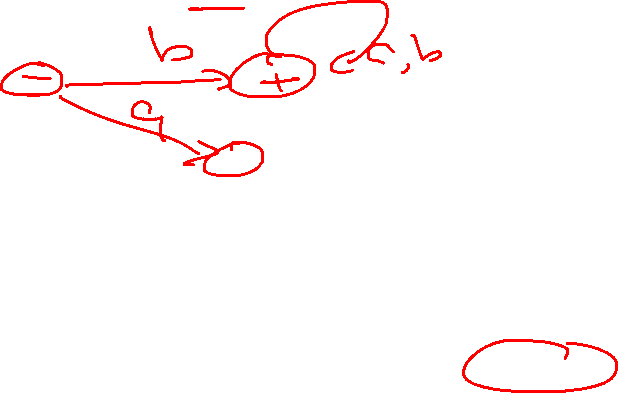 b a,b
- +
a